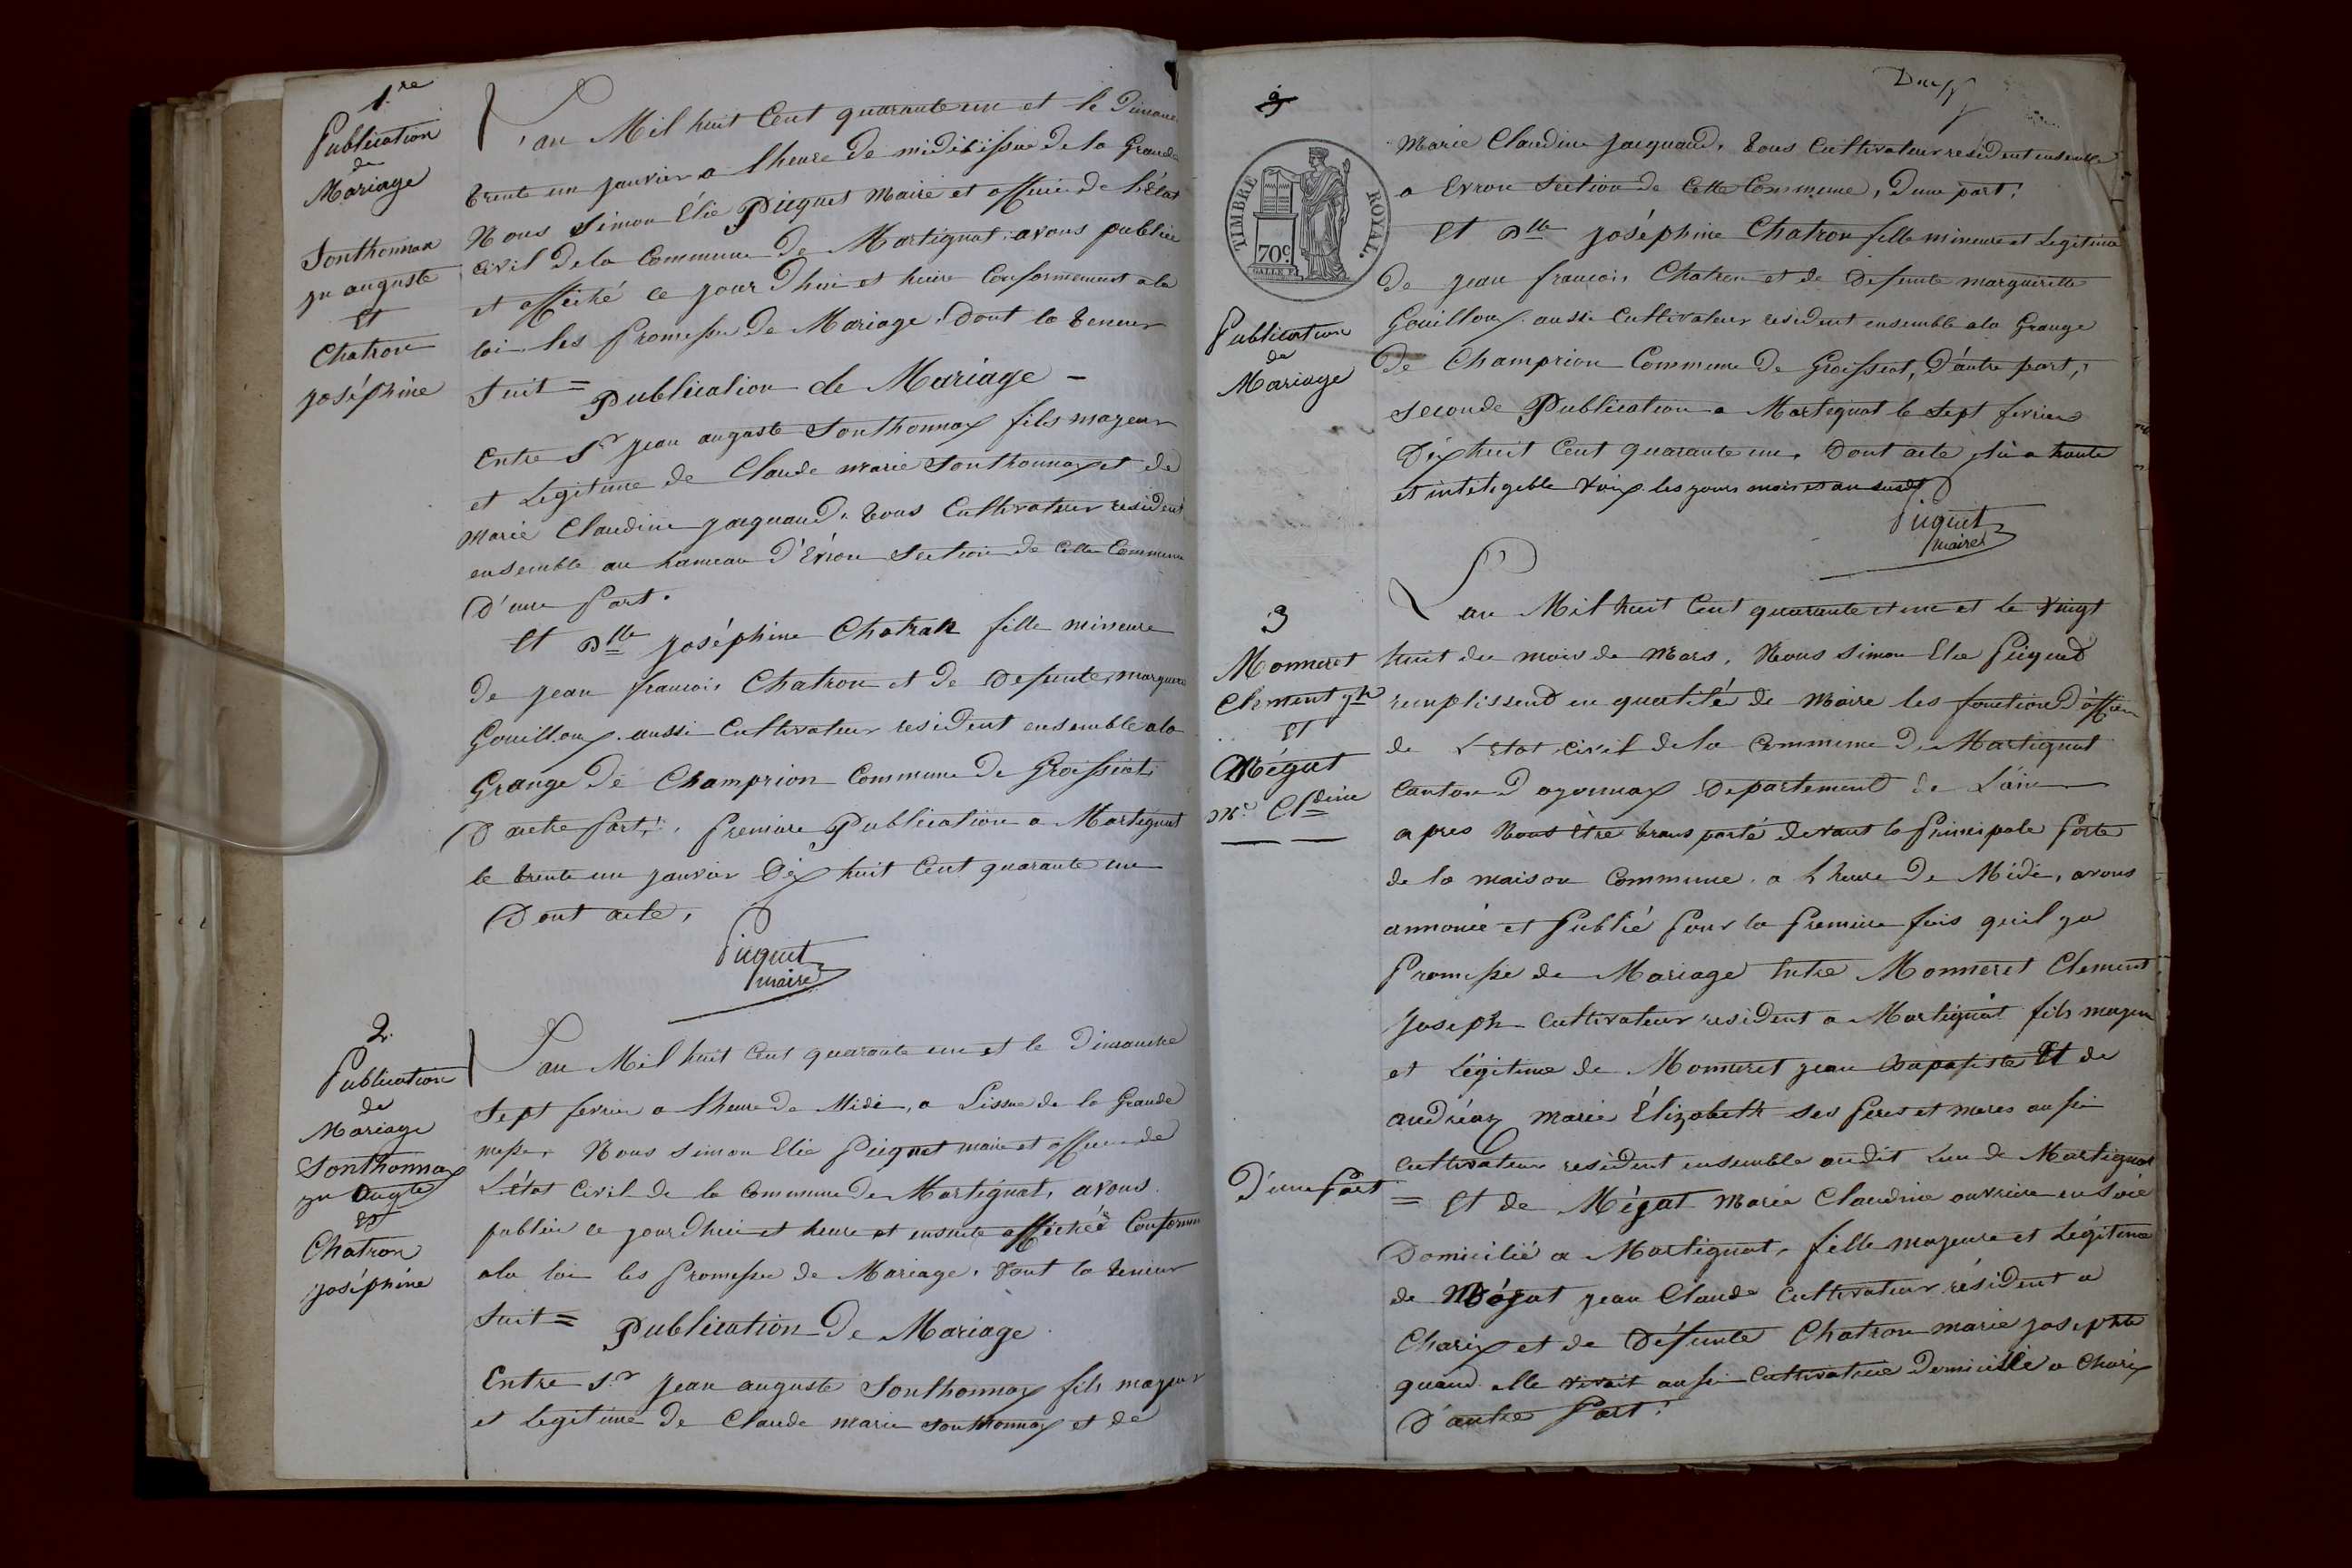 1.re
Publication
de
Mariage
Sonthonnax
jn auguste
Et
Chatron
joséphine
L'an Mil huit Cent quarante un et le Dimanc
trente un janvier a lheure de midi a lissue de la Grande
Nous Simon Elie Picquet Maire et officier de L'Etat
civil de la Commune de Martignat avons publiée
et affiché ce jour Dhui et heure Conformement a la
loi les Promesse de Mariage. Dont la teneur
Suit =
Publication de Mariage -
Entre Sr jean auguste Sonthonnax fils majeur
et Legitime de Claude marie Sonthonnax et de
Marie Claudine jacquand. tous Cultivateur resident
ensemble au hameau d'Evron Section de Cette Commune
D'une Part.
Et Dlle joséphine Chatron fille mineure
de jean francois Chatron et de Defunte marguer
Gouilloux. aussi Cultivateur resident ensemble a la
Grange de Champrion Commune de Groissiat
D'autre Part, Premiere Publication a Martignat
le trente un janvier Dix huit Cent quarante un
Dont acte,
Picquet
maire
2.
Publication
de
Mariage
Sonthonnax
jn augte
Et
Chatron
joséphine
L'an Mil huit Cent quarante un et le Dimanche
Sept fevrier a lheure de Midi, a Lissue de la Grande
messe. Nous Simon Elie Picquet maire et officier de
L'état Civil de la Commune de Martignat, avons
publiée ce jour Dhui et heure et ensuite affichées Conformem
a la loi les Promesse de Mariage. Dont la teneur
Suit =
Publication De Mariage
Entre Sr jean auguste Sonthonnax fils majeur
et Legitime de Claude marie Sonthonnax et de
Deux
TIMBRE ROYAL.
70c.
Marie Claudine jacquand. tous Cultivateur resident ensemble
a Evron Section de Cette Commune, D'une part.
Et Dlle joséphine Chatron fille mineure et Legitime
de jean francois Chatron et de Defunte marguerite
Gouilloux aussi Cultivateur resident ensemble a la Grange
de Champrion Commune de Groissiat, D'autre part,
Publication
de
Mariage
seconde Publication a Martignat le Sept fevrier
Dix huit Cent quarante un. Dont acte, lu a haute
et inteligeble Voix les jours mois et an susdt
Picquet
maire
3
Monneret
Clement jh
Et
Mégat
Mie Cldine
L'an Mil huit Cent quarante et un et Le vingt
huit du mois de Mars. Nous Simon Elie Picquet
remplissend en qualité de Maire les fonction D'officier
de L'etat civil de la Commune de Martignat
Canton D'oyonnax Departement de L'ain
apres Nous Etre transporté devant la Principale Porte
de la maison Commune a Lheure de Midi, avons
annoncé et Publié Pour la Premiere fois quil y a
Promesse de Mariage Entre Monneret Clement
Joseph Cultivateur resident a Martignat fils majeur
et Légitime de Monneret jean Baptiste Et de
andréaz marie Élizabeth ses Peres et meres aussi
Cultivateur resident ensemble audit Lieu de Martignat
D'une Part
= Et de Mégat Marie Claudine ouvriere en soie
Domicilié a Martignat, fille majeure et Légitime
de Mégat jean Claude Cultivateur résident a
Charix et de Défunte Chatron marie josephte
quand elle vivait aussi Cultivatrice Domicillié a Charix
D'autre Part.